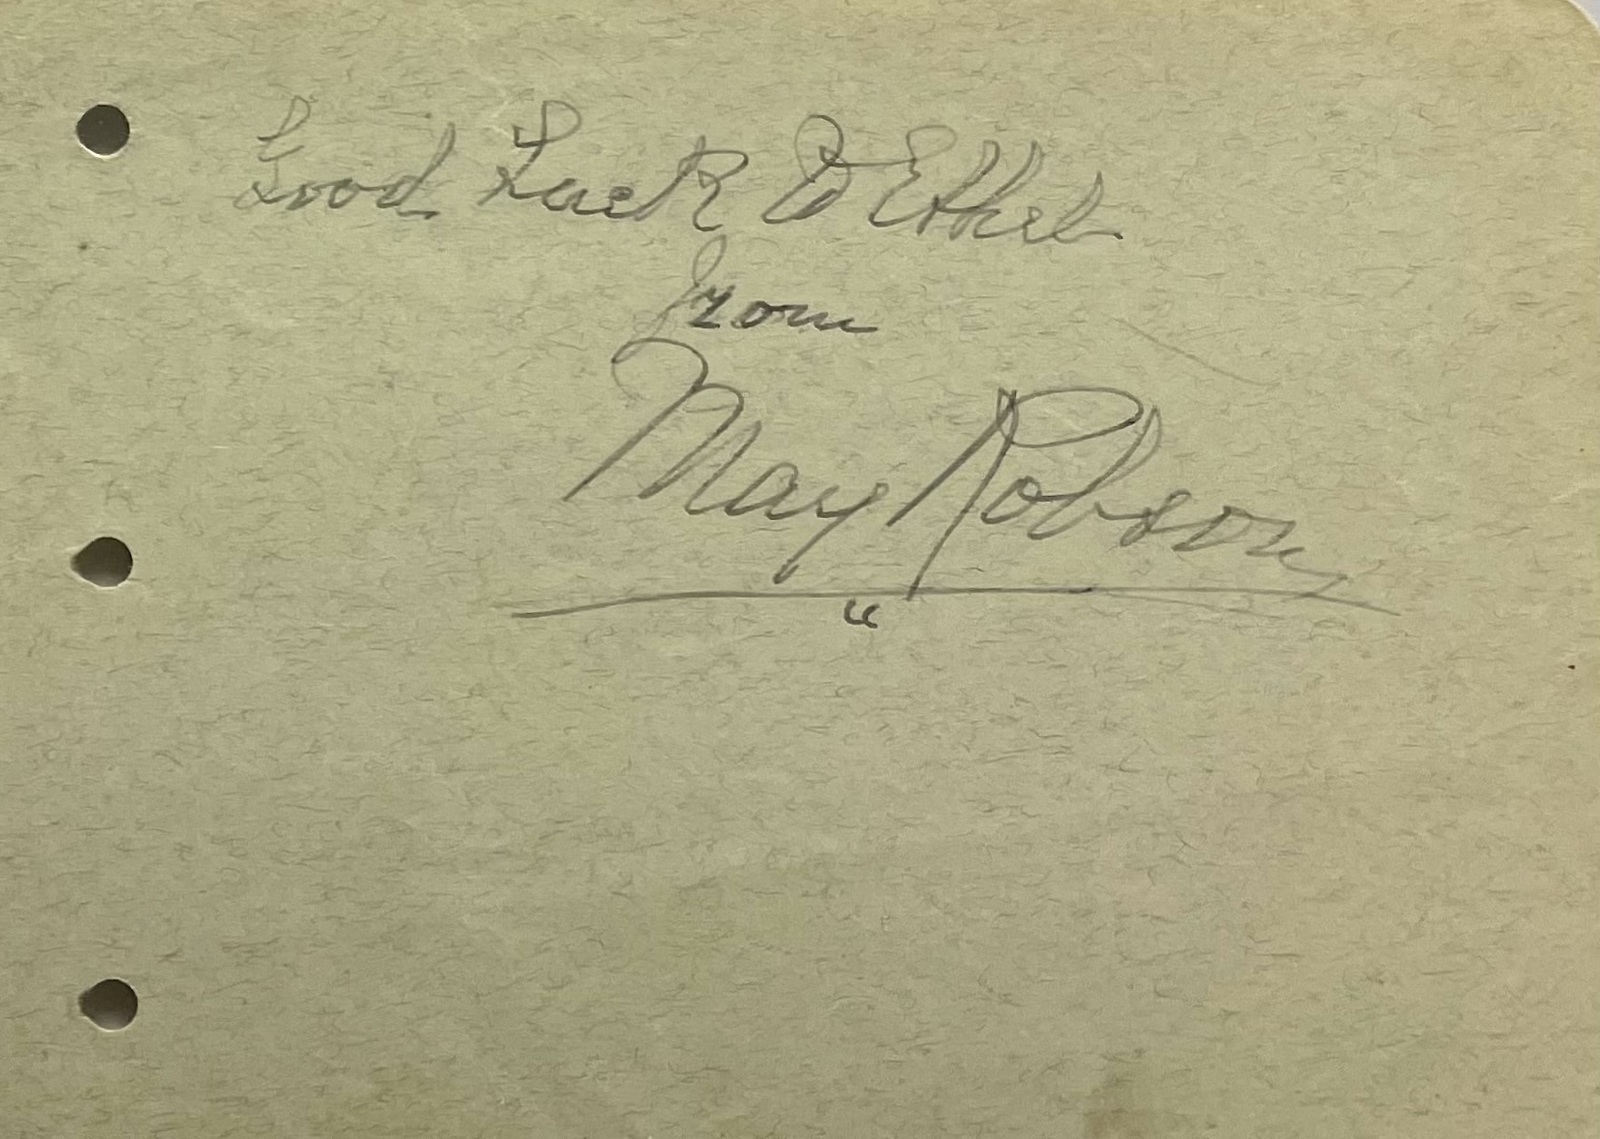 Good Luck To Ethel
from
May Robson
"